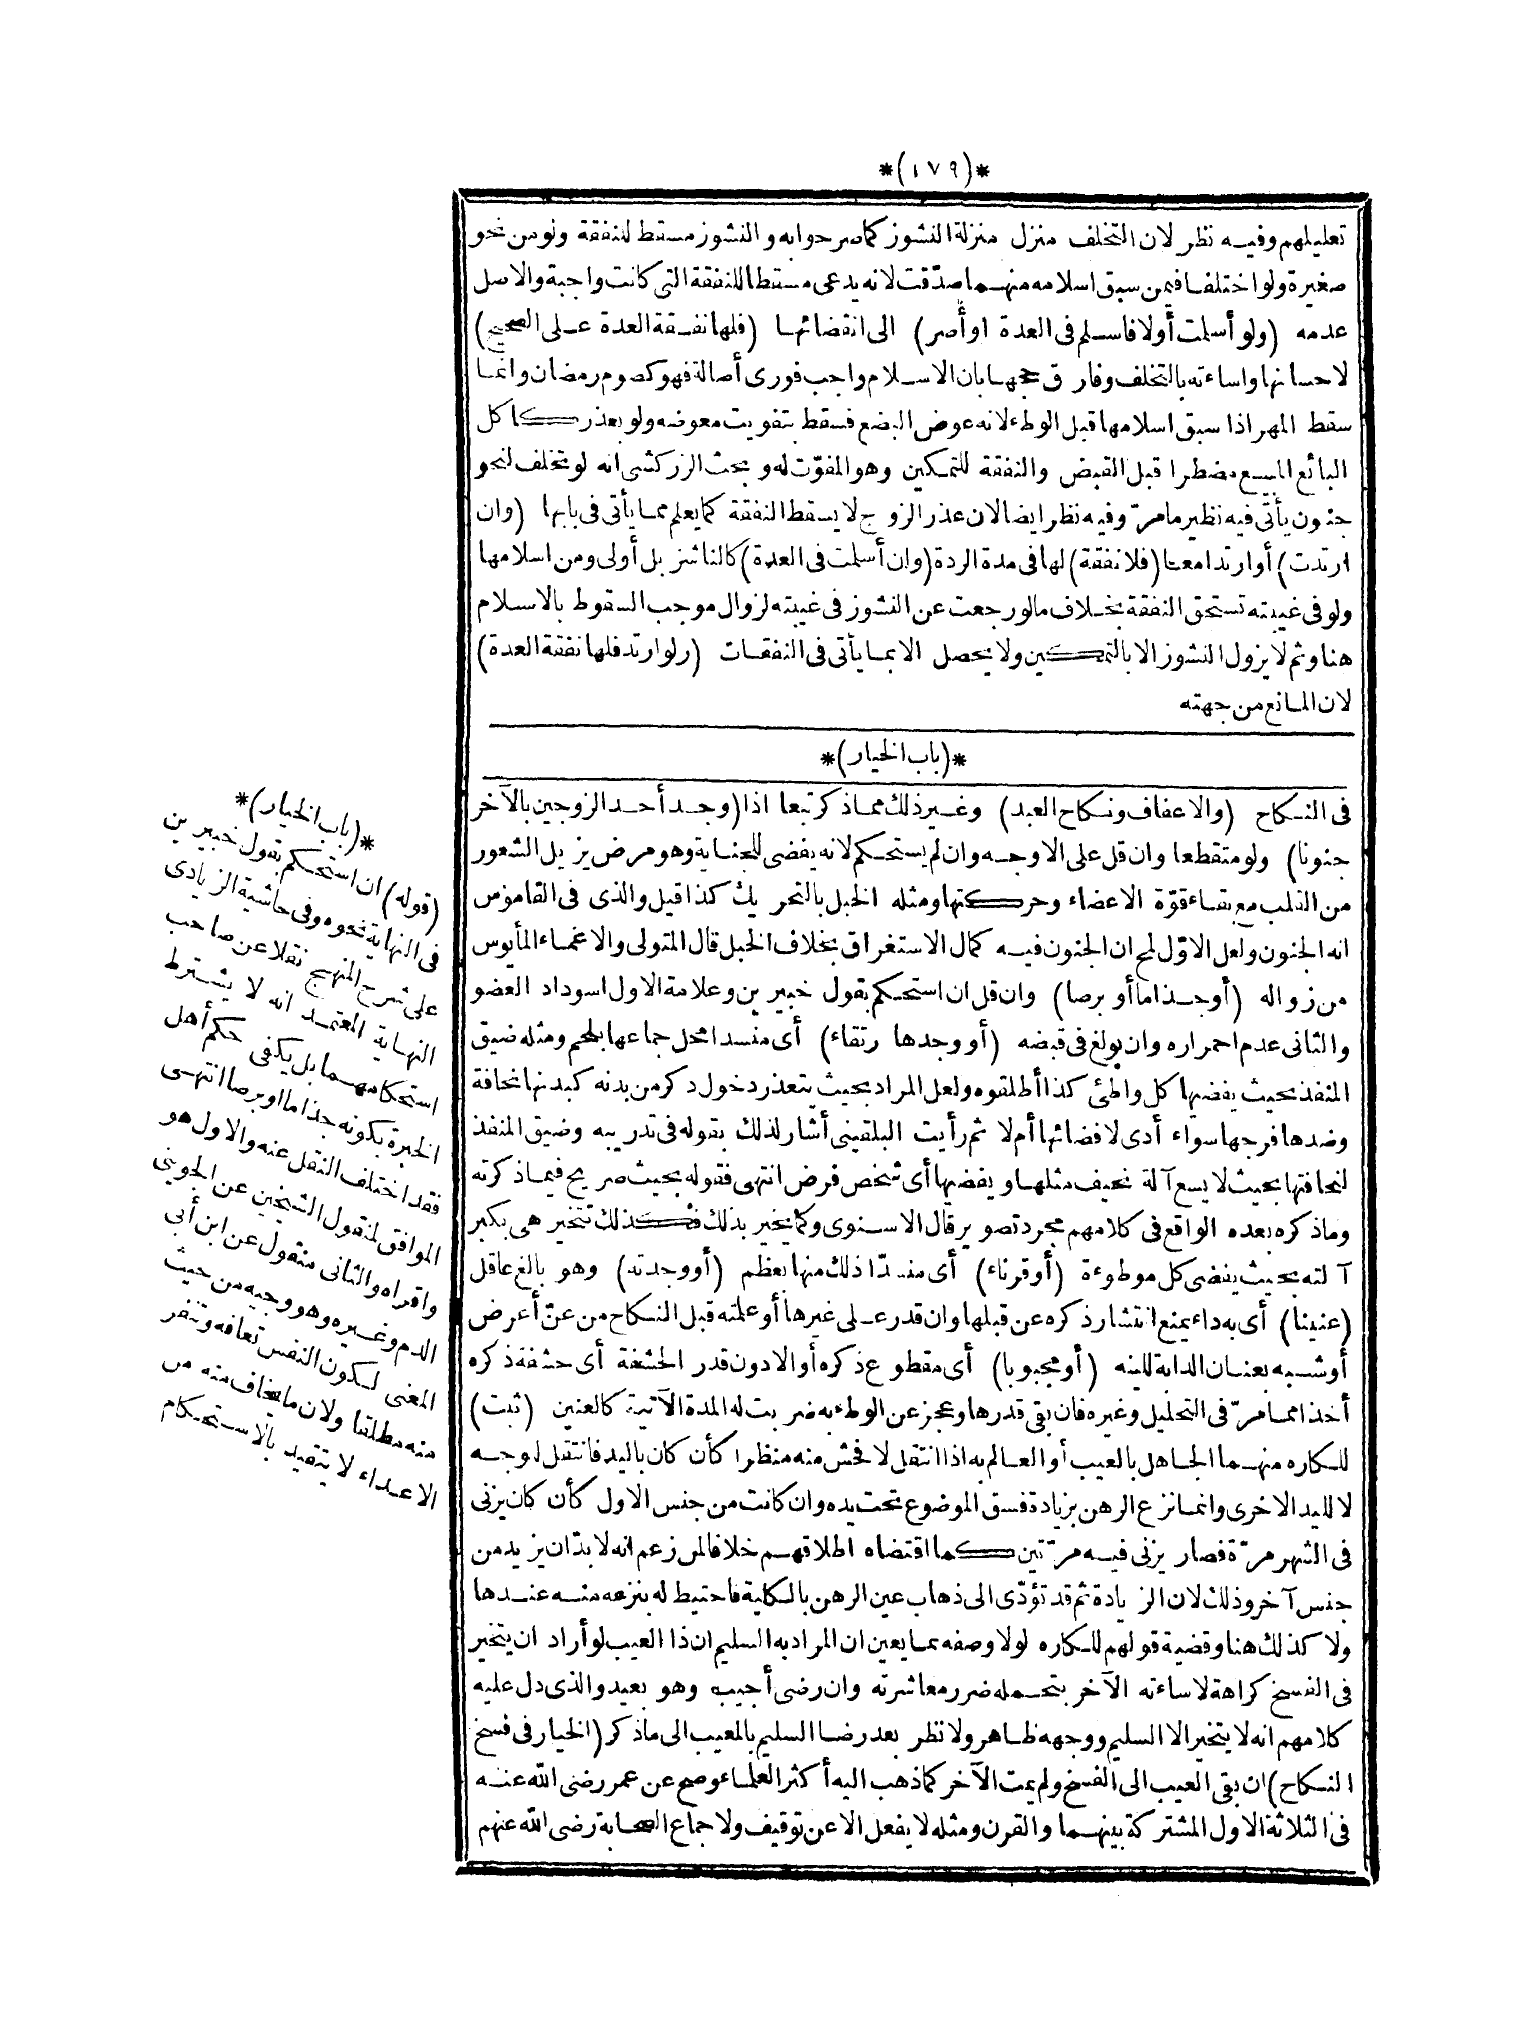 *(١٧٩)*
تعليلهم وفيه نظر لان التخلف منزل منزلة النشوز كما صرحوا به والنشوز مسقط للنفقة ولو من نحو
صغيرة ولو اختلفا فيمن سبق اسلامه منهما صدّقت لانه يدعى مسقطا للنفقة التى كانت واجبة والاصل
عدمه (ولو أسلمت أولا فاسلم فى العدة او أصر) الى انقضائها (فلها نفقة العدة على الصحيح)
لاحسانها واساءته بالتخلف وفارق حجها بان الاسلام واجب فورى أصالة فهو كصوم رمضان وانما
سقط المهر اذا سبق اسلامها قبل الوطء لانه عوض البضع فسقط بتفويت معوضه ولو بعذر كأكل
البائع المبيع مضطرا قبل القبض والنفقة للتمكين وهو المفوّت له وبحث الزركشى انه لو تخلف لنحو
جنون يأتى فيه نظير ما مرّ وفيه نظر ايضا لان عذر الزوج لا يسقط النفقة كما يعلم مما يأتى فى بابها (وان
ارتدت) أو ارتدا معا (فلا نفقة) لها فى مدة الردة (وان أسلمت فى العدة) كالناشز بل أولى ومن اسلامها
ولو فى غيبته تستحق النفقة بخلاف ما لو رجعت عن النشوز فى غيبته لزوال موجب السقوط بالاسلام
هنا وثم لا يزول النشوز الا بالتمكين ولا يحصل الا بما يأتى فى النفقات (ولو ارتد فلها نفقة العدة)
لان المانع من جهته
*(باب الخيار)*
فى النكاح (والاعفاف ونكاح العبد) وغير ذلك مما ذكر تبعا اذا (وجد أحد الزوجين بالآخر
جنونا) ولو متقطعا وان قل على الاوجه وان لم يستحكم لانه يفضى للجناية وهو مرض يزيل الشعور
من القلب مع بقاء قوّة الاعضاء وحركتها ومثله الخبل بالتحريك كذا قيل والذى فى القاموس
انه الجنون ولعل الاوّل لمح ان الجنون فيه كمال الاستغراق بخلاف الخبل قال المتولى والاغماء المأيوس
من زواله (أو جذاما أو برصا) وان قل ان استحكم بقول خبيرين وعلامة الاول اسوداد العضو
والثانى عدم احمراره وان بولغ فى قبضه (أو وجدها رتقاء) أى منسدا محل جماعها بلحم ومثله ضيق
المنفذ بحيث يفضيها كل واطئ كذا أطلقوه ولعل المراد بحيث يتعذر دخول ذكر من بدنه كبدنها نحافة
وضدها فرجها سواء أدى لافضائها أم لا ثم رأيت البلقينى أشار لذلك بقوله فى تدريبه وضيق المنفذ
لنحافتها بحيث لا يسع آلة نحيف مثلها ويفضيها أى شخص فرض انتهى فقوله بحيث صريح فيما ذكرته
وما ذكره بعده الواقع فى كلامهم مجرد تصوير قال الاسنوى وكما يخير بذلك فكذلك تتخير هى بكبر
آلته بحيث يفضى كل موطوءة (أو قرناء) أى منسدّا ذلك منها بعظم (أو وجدته) وهو بالغ عاقل
(عنينا) أى به داء يمنع انتشار ذكره عن قبلها وان قدر على غيرها أو علمته قبل النكاح من عنّ أعرض
أو شبه بعنان الدابة للينه (أو مجبوبا) أى مقطوع ذكره أو الا دون قدر الحشفة أى حشفة ذكره
أخذا مما مرّ فى التحليل وغيره فان بقى قدرها وعجز عن الوطء به ضربت له المدة الآتية كالعنين (ثبت)
للكاره منهما الجاهل بالعيب أو العالم به اذا انتقل لافحش منه منظرا كأن كان باليد فانتقل لوجه
لا لليد الاخرى وانما نزع الرهن بزيادة فسق الموضوع تحت يده وان كانت من جنس الاول كأن كان يزنى
فى الشهر مرّة فصار يزنى فيه مرّتين كما اقتضاه اطلاقهم خلافا لمن زعم انه لا بدّ ان يزيد من
جنس آخر وذلك لان الزيادة ثم قد تؤدّى الى ذهاب عين الرهن بالكلية فاحتيط له بنزعه منه عندها
ولا كذلك هنا وقضية قولهم للكاره لولا وصفه بما يعين ان المراد به السليم ان ذا العيب لو أراد ان يتخير
فى الفسخ كراهة لاساءته الآخر بتحمله ضرر معاشرته وان رضى أجيب وهو بعيد والذى دل عليه
كلامهم انه لا يتخير الا السليم ووجهه ظاهر ولا نظر بعد رضا السليم بالمعيب الى ما ذكر (الخيار فى فسخ
النكاح) ان بقى العيب الى الفسخ ولم يمت الآخر كما ذهب اليه أكثر العلماء وصح عن عمر رضى الله عنه
فى الثلاثة الاول المشتركة بينهما والقرن ومثله لا يفعل الا عن توقيف ولاجماع الصحابة رضى الله عنهم
*(باب الخيار)*
(قوله) ان استحكم بقول خبيرين
فى النهاية نحوه وفى حاشية الزيادى
على شرح المنهج نقلا عن صاحب
النهاية المعتمد انه لا يشترط
استحكامهما بل يكفى حكم أهل
الخبرة بكونه جذاما او برصا انتهى
فقد اختلف النقل عنه والاول هو
الموافق لمنقول الشيخين عن الجوينى
واقراه والثانى منقول عن ابن أبى
الدم وغيره وهو وجيه من حيث
المعنى لكون النفس تعافه وتنفر
منه مطلقا ولان ما يخاف منه من
الاعداء لا يتقيد بالاستحكام